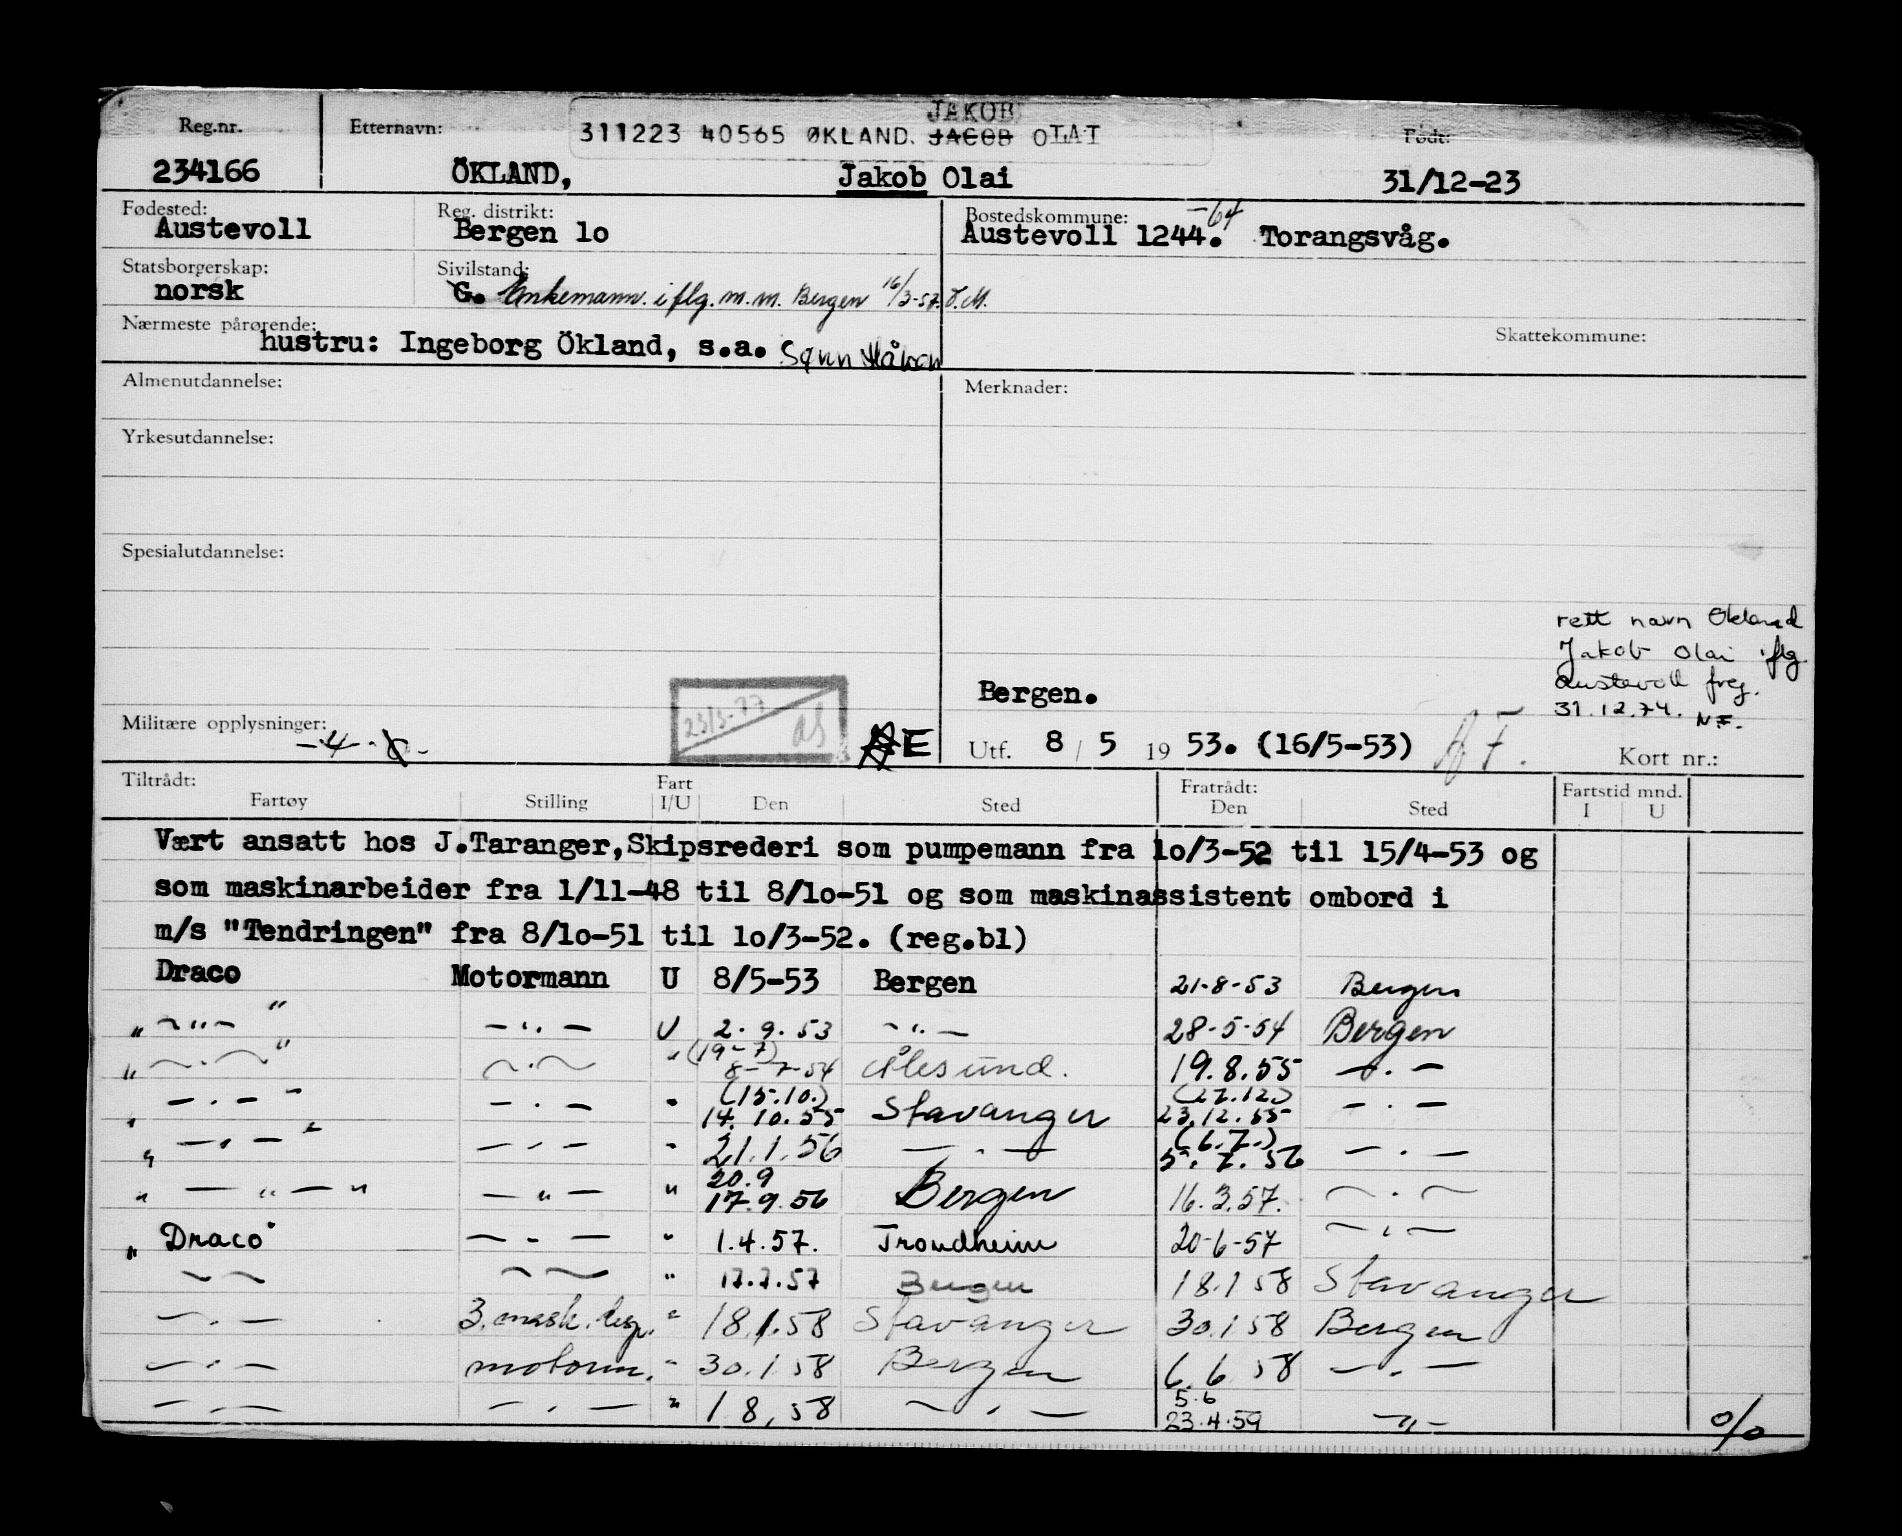 JAKOB
Reg.nr. Etternavn: 311223 40565 ØKLAND. JACOB OLAI Født:
234166 ÖKLAND, Jakob Olai 31/12-23
Fødested: Reg. distrikt: Bostedskommune: -64
Austevoll Bergen lo Austevoll 1244. Torangsvåg.
Statsborgerskap: Sivilstand:
norsk G. Enkemann. iflg. m.m. Bergen 16/3-57. J.M.
Nærmeste pårørende: Skattekommune:
hustru: Ingeborg Ökland, s.a. Sønn Håkon
Almenutdannelse: Merknader:
Yrkesutdannelse:
Spesialutdannelse:
rett navn Økland
Jakob Olai iflg.
Austevoll freg.
31.12.74. NF.
Bergen.
23/3-77
Militære opplysninger: E Utf. 8 / 5 19 53. (16/5-53) A.F. Kort nr.:
Tiltrådt: Fart Fratrådt: Fartstid mnd.
Fartøy Stilling I/U Den Sted Den Sted I U
Vært ansatt hos J.Taranger,Skipsrederi som pumpemann fra lo/3-52 til 15/4-53 og
som maskinarbeider fra 1/11-48 til 8/lo-51 og som maskinassistent ombord i
m/s "Tendringen" fra 8/lo-51 til lo/3-52. (reg.bl)
Draco Motormann U 8/5-53 Bergen 21-8-53 Bergen
" -"- " -"- U 2.9.53 -"- 28-5-54 Bergen
" -"- " -"- " (19-7) 8-7-54 Ålesund. 19.8.55 -"-
" -"- " -"- " (15.10.) 14.10.55 Stavanger (27.12.) 23.12.55 -"-
" -"- " -"- " 21.1.56 -"- (6.7.) 5.7.56 -"-
" -"- " -"- " 20.9 17.9.56 Bergen 16.3.57. -"-
"Draco" -"- " 1.4.57. Trondheim 20-6-57 -"-
-"- -"- " 17.7.57 Bergen 18.1 58 Stavanger
-"- 3.mask.besp. " 18.1.58 Stavanger 30.1 58 Bergen
-"- motorm. " 30.1.58 Bergen 6.6 58 -"-
-"- -"- " 1 8.58 -"- 5.6 23.4.59 -"- o/o